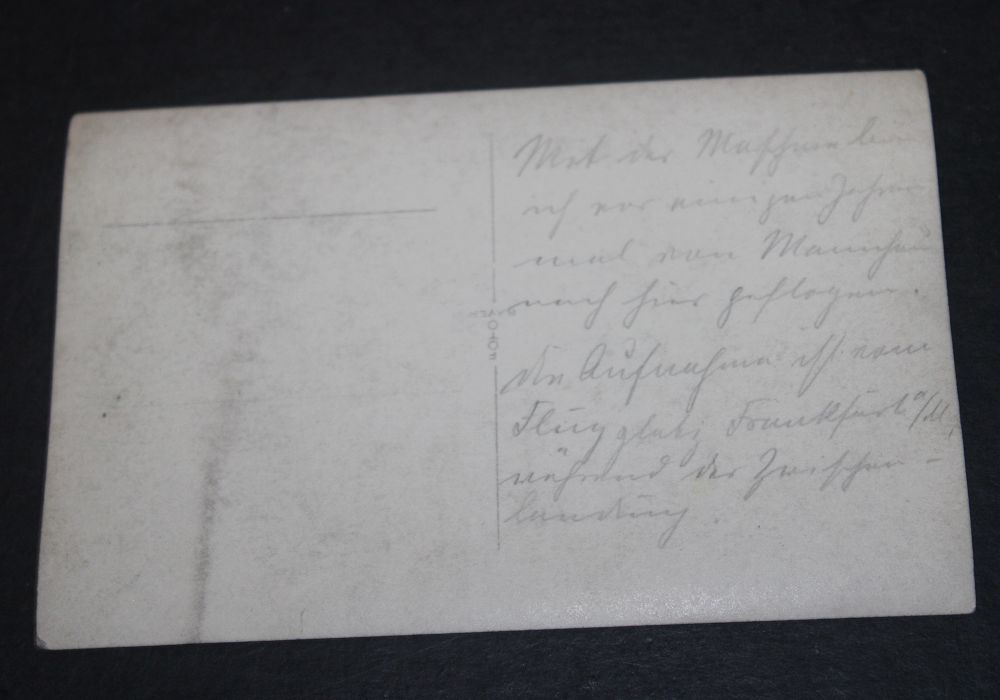 Mit der Maschine bin
ich vor einigen Jahren
mal von Mannheim
nach hier geflogen.
die Aufnahme ist vom
Flugplatz Frankfurt a/M,
während der Zwischen-
landung.